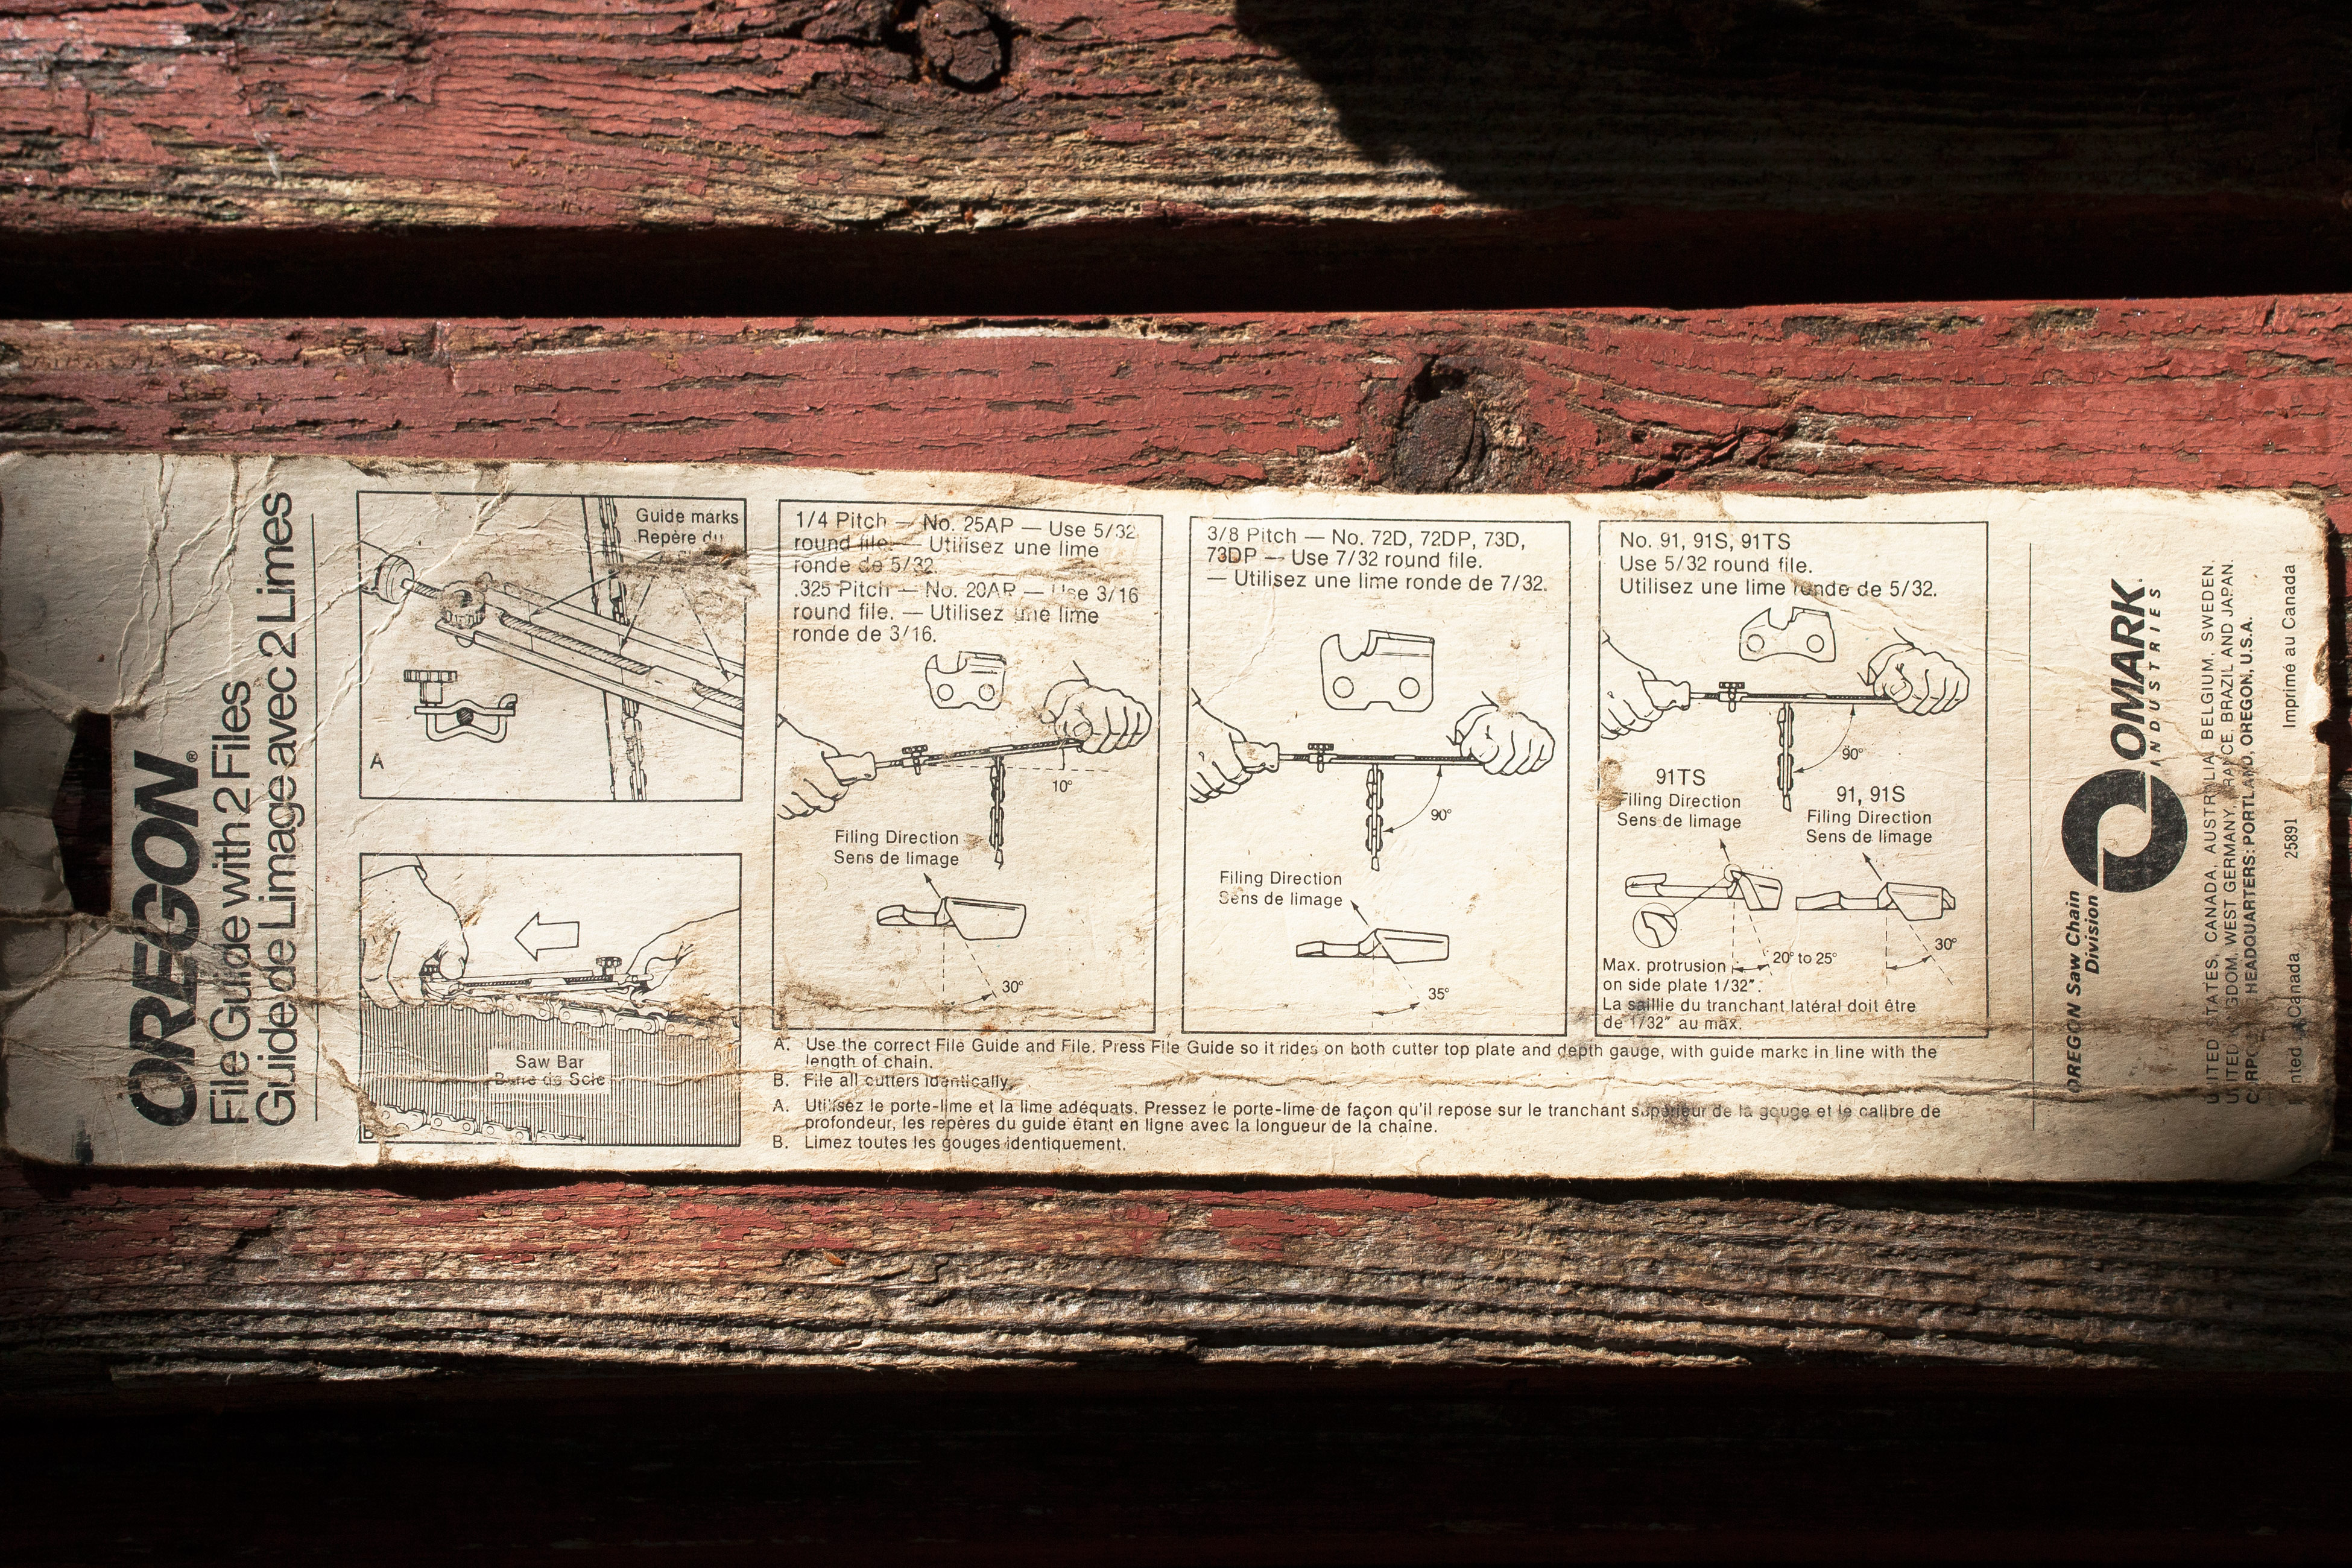 OREGON®
File Guide with 2 Files
Guide de Limage avec 2 Limes
Guide marks
Repère du
A
Saw Bar
Barre de Scie
B
1/4 Pitch — No. 25AP — Use 5/32
round file. — Utilisez une lime
ronde de 5/32.
.325 Pitch — No. 20AP — Use 3/16
round file. — Utilisez une lime
ronde de 3/16.
10°
Filing Direction
Sens de limage
30°
3/8 Pitch — No. 72D, 72DP, 73D,
73DP — Use 7/32 round file.
— Utilisez une lime ronde de 7/32.
90°
Filing Direction
Sens de limage
35°
No. 91, 91S, 91TS
Use 5/32 round file.
Utilisez une lime ronde de 5/32.
90°
91TS
Filing Direction
Sens de limage
91, 91S
Filing Direction
Sens de limage
20° to 25°
30°
Max. protrusion
on side plate 1/32".
La saillie du tranchant latéral doit être
de 1/32" au max.
A. Use the correct File Guide and File. Press File Guide so it rides on both cutter top plate and depth gauge, with guide marks in line with the
length of chain.
B. File all cutters identically.
A. Utilisez le porte-lime et la lime adéquats. Pressez le porte-lime de façon qu'il repose sur le tranchant supérieur de la gouge et le calibre de
profondeur, les repères du guide étant en ligne avec la longueur de la chaîne.
B. Limez toutes les gouges identiquement.
OREGON Saw Chain
Division
OMARK
INDUSTRIES
UNITED STATES, CANADA, AUSTRALIA, BELGIUM, SWEDEN,
UNITED KINGDOM, WEST GERMANY, FRANCE, BRAZIL AND JAPAN.
HEADQUARTERS: PORTLAND, OREGON, U.S.A.
Canada 25891 Imprimé au Canada